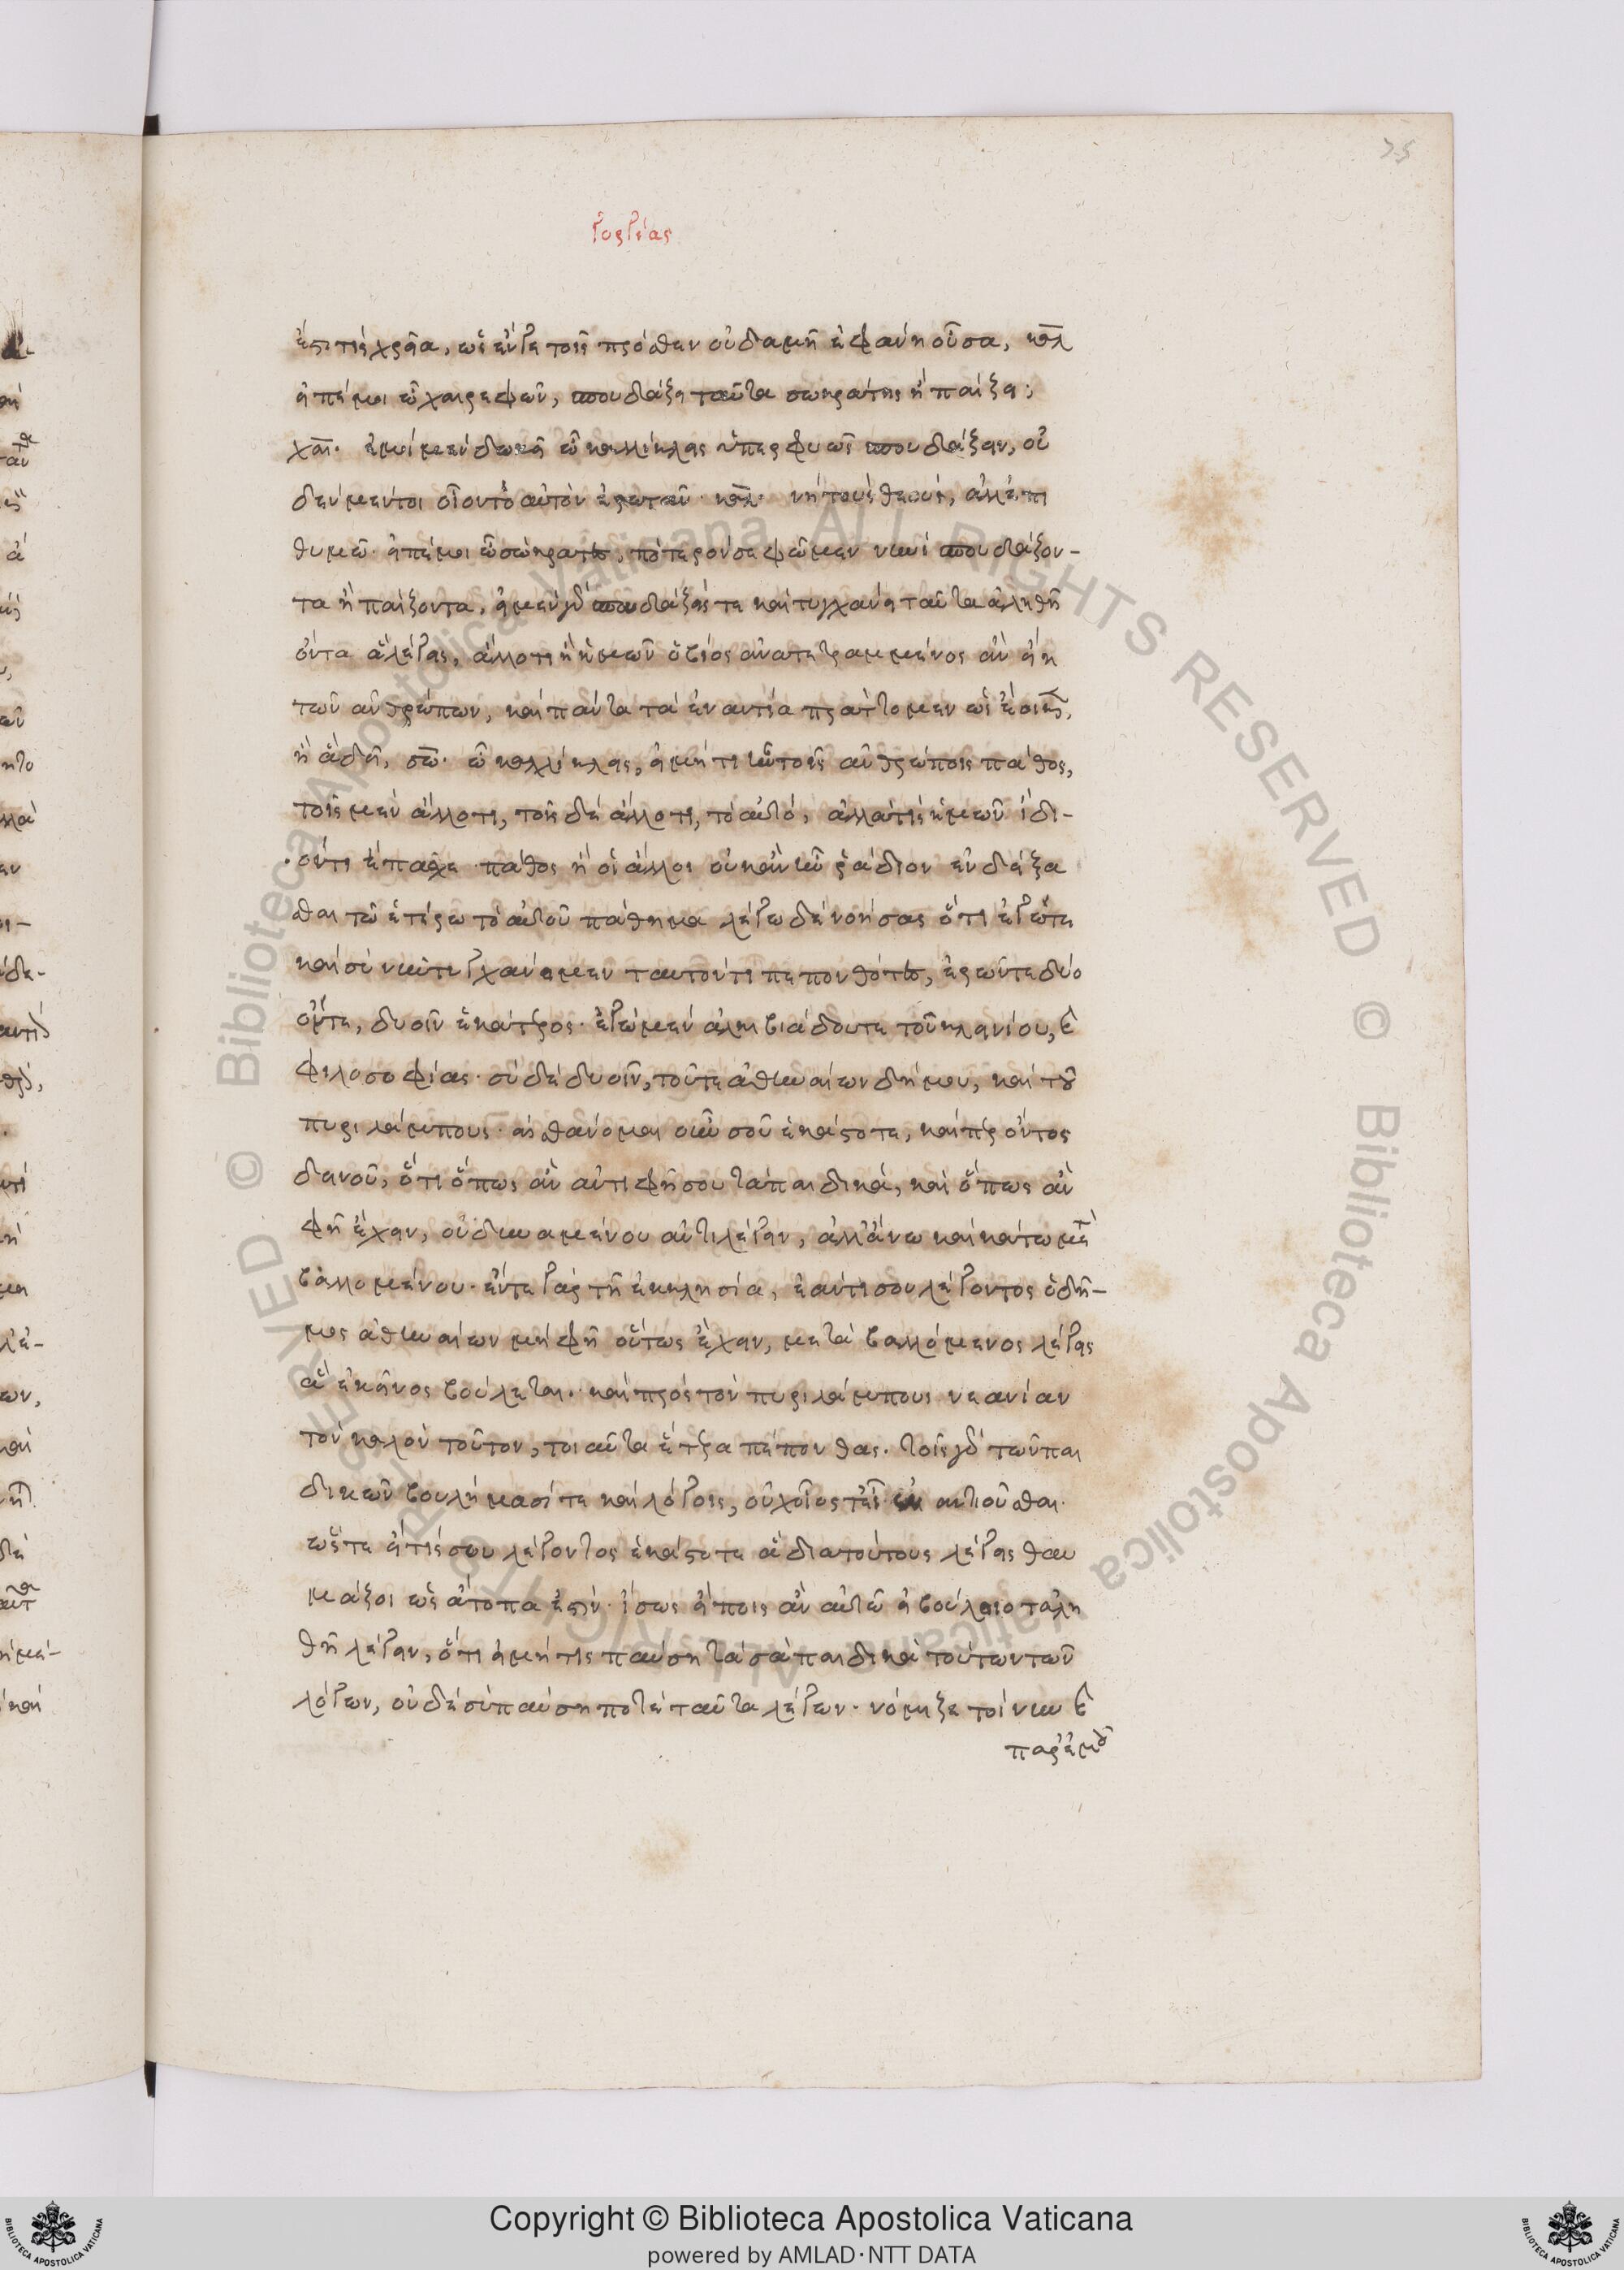 75
γοργίας
ἐστι τὶς χρεία, ὡς ἔν γε τοῖς πρόσθεν οὐδαμῆ ἐφάνη οὖσα, καλ
εἰπέ μοι ὦ χαιρεφῶν, σπουδάζει ταῦτα σωκράτης ἢ παίζει;
χαι. ἐμοὶ μὲν δοκεῖ ὦ καλλίκλεις ὑπερφυῶς σπουδάζειν, οὐ
δὲν μέντοι οἷον τὸ αὐτὸν ἐρωτᾶν· καλ. νὴ τοὺς θεοὺς, ἀλλ' ἐπι
θυμῶ· εἰπέ μοι ὦ σώκρατες, πότερόν σε φῶμεν νυνὶ σπουδάζον-
τα ἢ παίζοντα, εἰ μὲν γὰρ σπουδάζεις τε καὶ τυγχάνει ταῦτα ἀληθῆ
ὄντα ἃ λέγεις, ἄλλο τι ἢ ἡμῶν ὁ βίος ἀνατετραμμένος ἂν εἴη
τῶν ἀνθρώπων, καὶ πάντα τὰ ἐναντία πράττομεν ὡς ἔοικεν,
ἢ ἃ δεῖ, σω. ὦ καλλίκλεις, εἰ μή τι ἦν τοῖς ἀνθρώποις πάθος,
τοῖς μὲν ἄλλο τι, τοῖς δὲ ἄλλο τι, τὸ αὐτό, ἀλλά τις ἡμῶν ἴδι-
όν τι ἔπασχε πάθος ἢ οἱ ἄλλοι οὐκ ἂν ἦν ῥάδιον ἐνδείξα
σθαι τῶ ἑτέρω τὸ αὑτοῦ πάθημα λέγω δ' ἐννοήσας ὅτι ἐγώ τε
καὶ σὺ νῦν τυγχάνομεν ταυτόν τι πεπονθότες, ἐρῶντε δύο
ὄντε, δυοῖν ἑκάτερος· ἐγὼ μὲν ἀλκιβιάδου τε τοῦ κλεινίου, καὶ
φιλοσοφίας· σὺ δὲ δυοῖν, τοῦ τε ἀθηναίων δήμου, καὶ τοῦ
πυριλάμπους· αἰσθάνομαι οὖν σοῦ ἑκάστοτε, καίπερ ὄντος
δεινοῦ, ὅτι ὅπως ἂν ἀντιφῆ σου τὰ παιδικά, καὶ ὅπως ἂν
φῆ ἔχειν, οὐ δυναμένου ἀντιλέγειν, ἀλλ' ἄνω καὶ κάτω μετα
βαλλομένου· ἔν τε γὰρ τῆ ἐκκλησία, ἐάν τι σου λέγοντος ὁ δῆ-
μος ἀθηναίων μὴ φῆ οὕτως ἔχειν, μεταβαλλόμενος λέγεις
ἃ ἐκεῖνος βούλεται· καὶ πρὸς τὸν πυριλάμπους νεανίαν
τὸν καλὸν τοῦτον, τοιαῦτα ἕτερα πέπονθας. τοῖς γὰρ τῶν παι
δικῶν βουλήμασί τε καὶ λόγοις, οὐχ οἷός τ' εἶ ἐναντιοῦσθαι·
ὥστε εἴ τίς σου λέγοντος ἑκάστοτε ἃ διὰ τούτους λέγεις θαυ
μάζοι ὡς ἄτοπά ἐστιν· ἴσως εἴποις ἂν αὐτῶ εἰ βούλοιο τἀλη
θῆ λέγειν, ὅτι εἰ μή τις παύσει τὰ σὰ παιδικὰ τούτων τῶν
λόγων, οὐδὲ σὺ παύσῃ ποτὲ ταῦτα λέγων· νόμιζε τοίνυν καὶ
παρ' ἐμοῦ
Copyright © Biblioteca Apostolica Vaticana
powered by AMLAD·NTT DATA